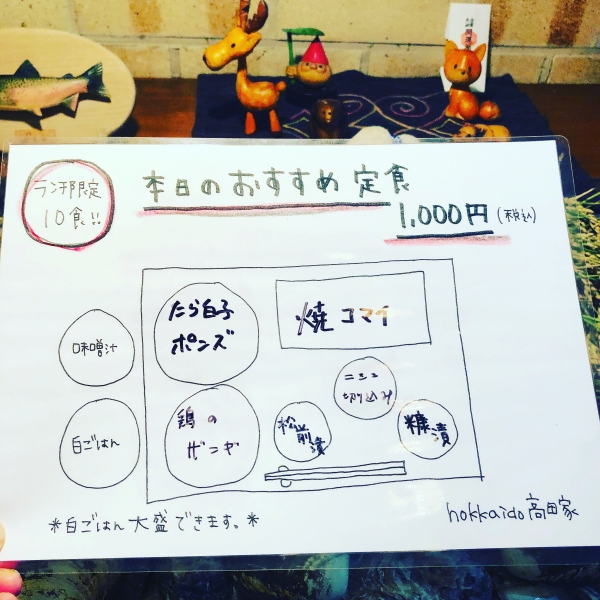 ランチ限定
10食!!
本日のおすすめ定食
1,000円(税込)
たら白子
ポンズ
焼コマイ
味噌汁
ニシン
切り込み
鶏の
ザンギ
松前漬
糠漬
白ごはん
*白ごはん大盛できます。*
hokkaido高田家